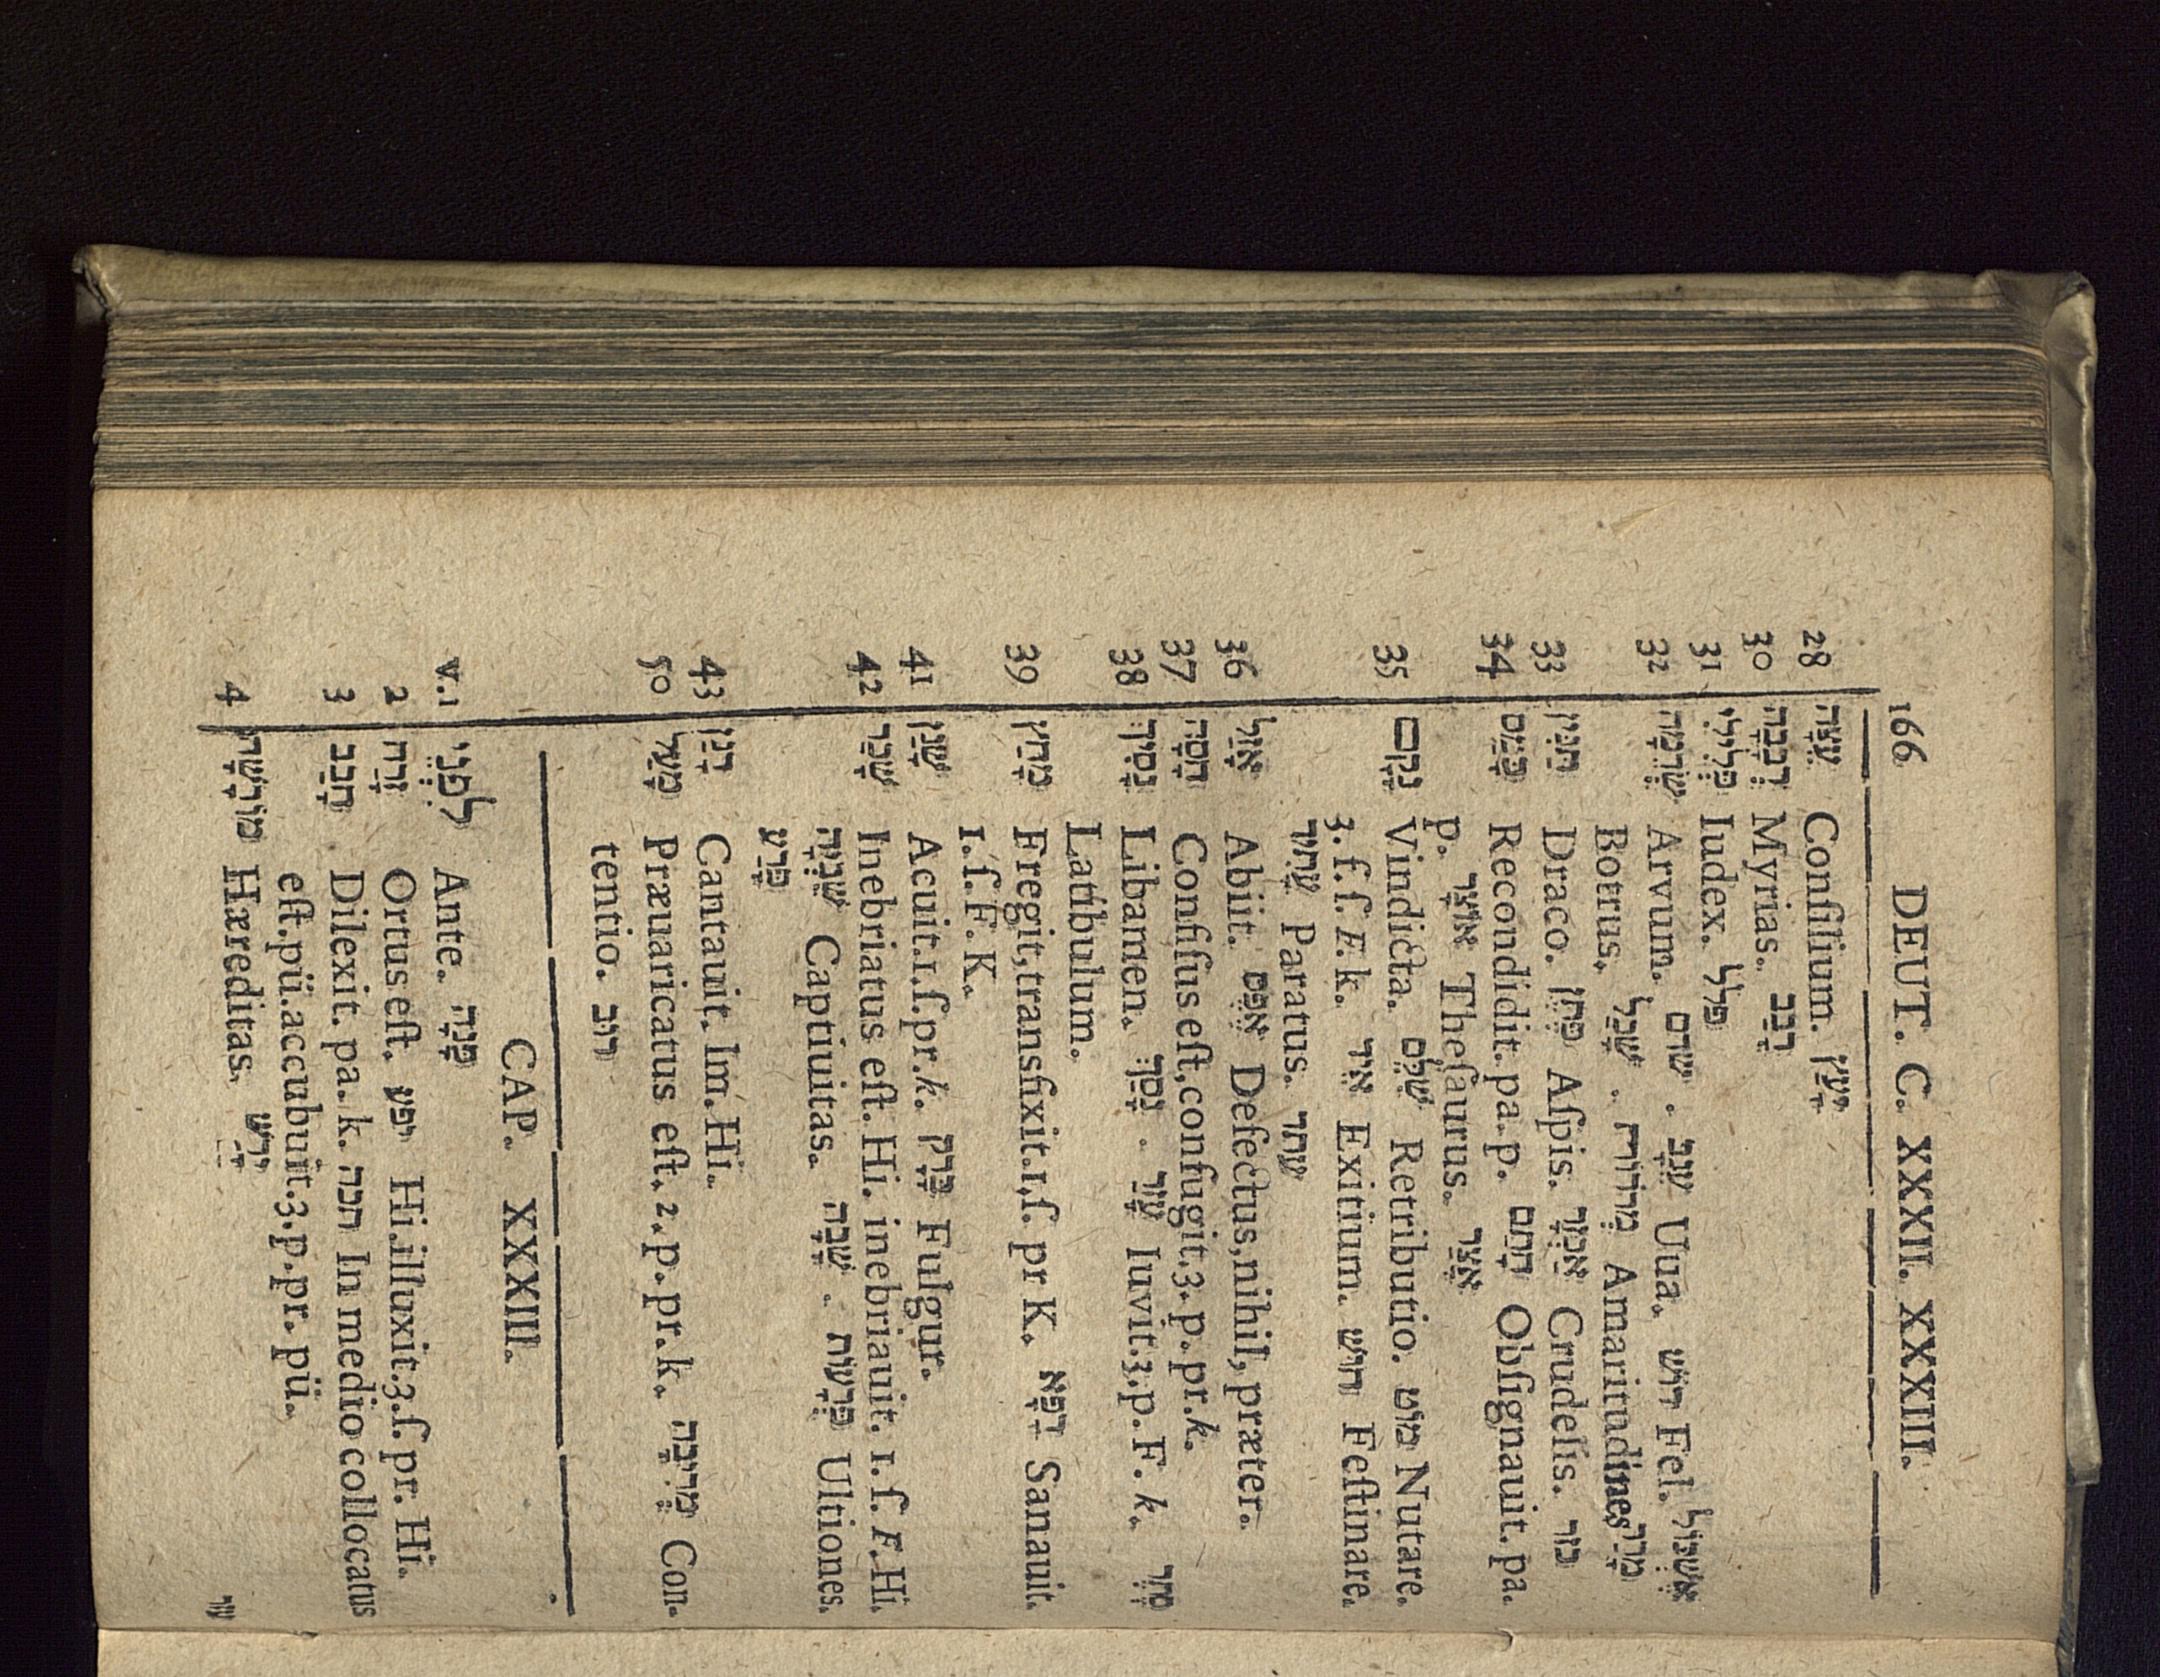 166 DEUT. C. XXXII. XXXIII.
28 עֵצָה Conſilium. יָעַץ
30 רְבָבָה Myrias. רָבַב
31 פְּלִילִי Iudex. פלל
32 שְׁדֵמָה Arvum. שדם . עֵנָב Uua. רוש Fel. אֶשְׁכּוֹל
Botrus. שָׁכַל . מְרוֹרוֹת Amaritudines מָרַר
33 תַּנִּין Draco. פֶּתֶן Aſpis. אַכְזָר Crudelis. כזר
34 כָּמַס Recondidit. pa. p. חָתַם Obſignauit. pa.
p. אוֹצָר Theſaurus. אָצַר
35 נָקָם Vindicta. שִׁלֵּם Retributio. מוט Nutare.
3. ſ. f. F. k. אֵיד Exitium. חוש Feſtinare.
עָתִיד Paratus. עתד
36 אָזַל Abiit. אֶפֶס Defectus, nihil, præter.
37 חָסָה Confiſus eſt, confugit. 3. p. pr. k.
38 נָסִיךְ Libamen. נָסַךְ . עָזַר Iuvit. 3. p. F. k. סֵתֶר
Latibulum.
39 מָחַץ Fregit, transfixit. 1. ſ. pr K. רָפָא Sanauit.
1. ſ. F. K.
41 שָׁנַן Acuit. 1. ſ. pr. k. בָּרָק Fulgur.
42 שָׁכַר Inebriatus eſt. Hi. inebriauit. 1. ſ. F. Hi.
שִׁבְיָה Captiuitas. שָׁבָה . פְּרָעוֹת Ultiones.
פָּרַע
43 רָנַן Cantauit. Im. Hi.
50 מָעַל Præuaricatus eſt. 2. p. pr. k. מְרִיבָה Con-
tentio. רוב
CAP. XXXIII.
v. 1 לִפְנֵי Ante. פָּנָה
2 זָרַח Ortus eſt. יפע Hi. illuxit. 3. ſ. pr. Hi.
3 חָבַב Dilexit. pa. k. תכה In medio collocatus
eſt. pü. accubuit. 3. p. pr. pü.
4 מוֹרָשָׁה Hæreditas. יָרַשׁ